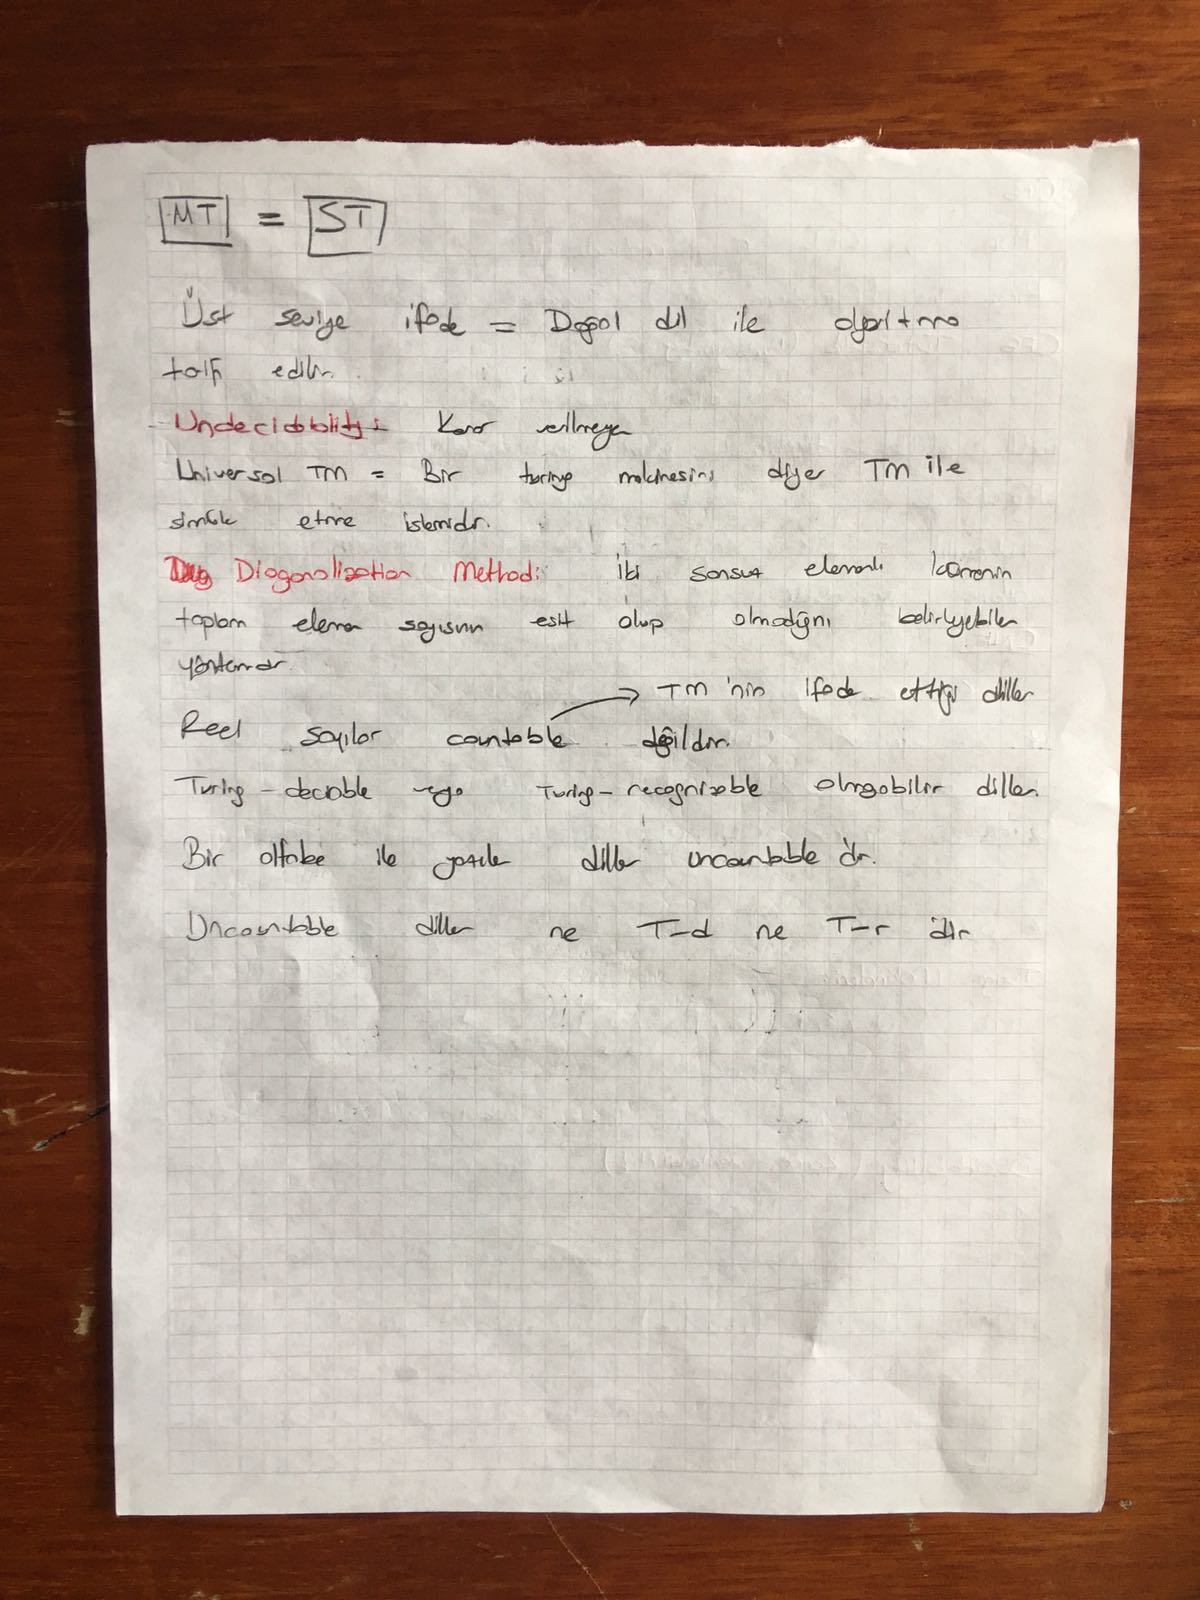 MT = ST
Üst seviye ifade = Doğal dil ile algoritma
tarif edilir.
Undecidability: Karar verilmeyen
Universal TM = Bir turing makinesini diğer TM ile
simüle etme işlemidir.
Diagonalization Method: iki sonsuz elemanlı kümenin
toplam eleman sayısının eşit olup olmadığını belirleyebilen
yöntemdir
TM 'nin ifade ettiği diller
Reel sayılar countable değildir.
Turing-decidable veya Turing-recognizable olmayabilir diller.
Bir alfabe ile yazılan diller uncountable dır.
Uncountable diller ne T-d ne T-r dir